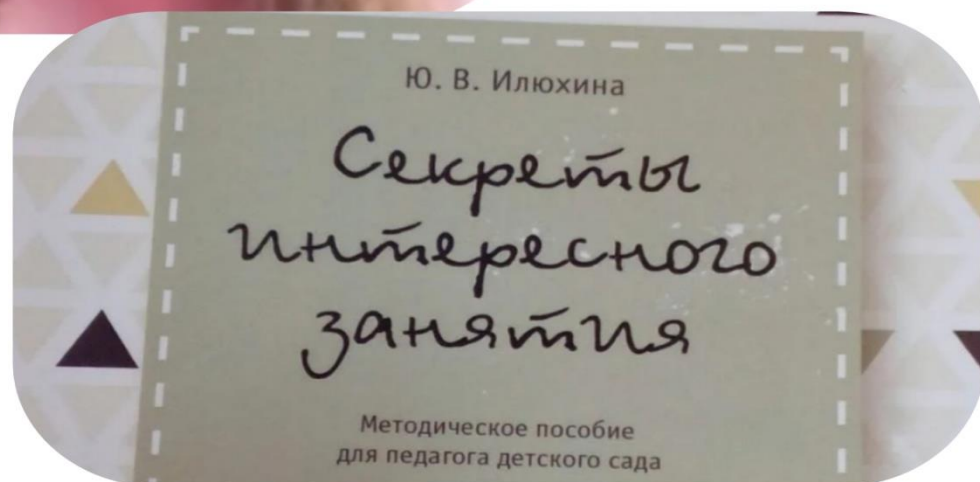 Ю. В. Илюхина
Секреты
интересного
занятия
Методическое пособие
для педагога детского сада